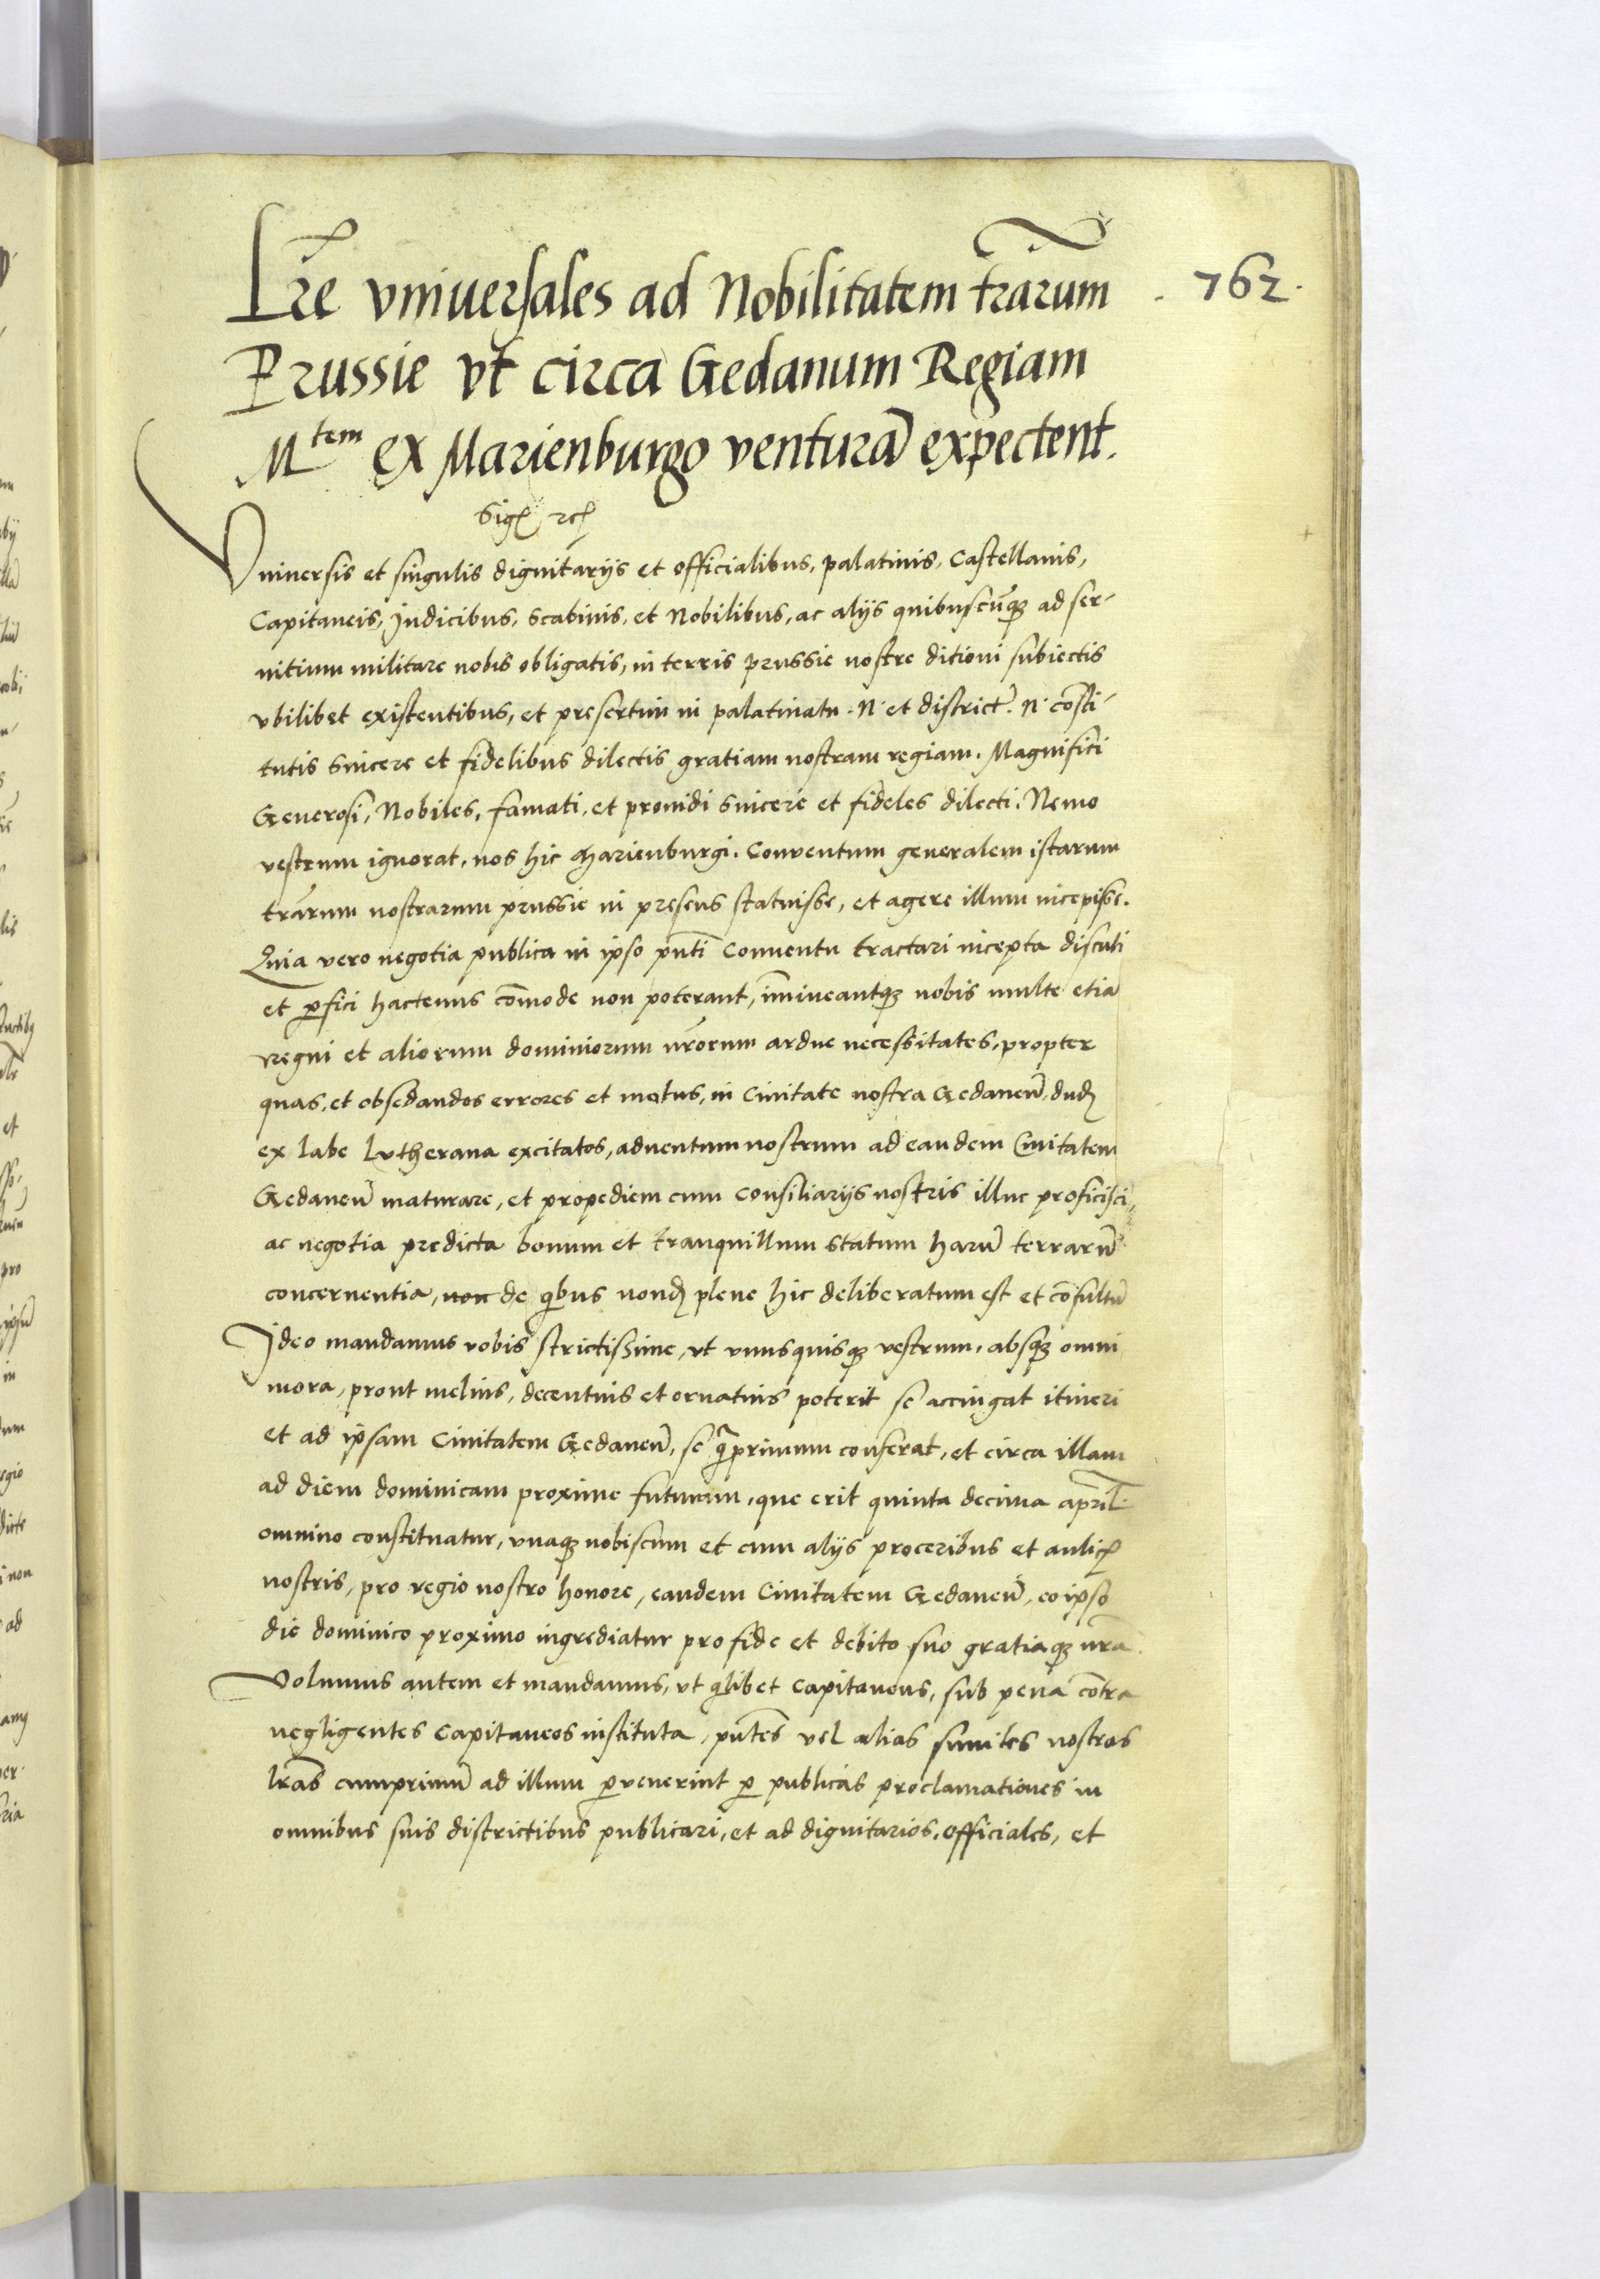 Lr̃e vniuersales ad Nobilitatem tr̃arum
762.
Prussie vt circa Gedanum Regiam
M^tem ex Marienburgo venturã expectent.
Sig^ etc^
Vniuersis et singulis dignitarijs et officialibus, palatinis, Castellanis,
Capitaneis, Iudicibus, scabinis, et Nobilibus, ac alijs quibuscũq₃ ad ser-
uitium militare nobis obligatis, in terris prussie nostre ditioni subiectis
vbilibet existentibus, et presertim in palatinatu. N. et district̃. N. cõsti-
tutis sincere et fidelibus dilectis gratiam nostram regiam. Magnifici
Generosi, Nobiles, famati, et prouidi sincere et fideles dilecti. Nemo
vestrum ignorat, nos hic Marienburgi. Conuentum generalem istarum
tr̃arum nostrarum prussie in presens statuisse, et agere illum incepisse.
Quia vero negotia publica in ipso pñti Conuentu tractari incepta discuti
et ꝑfici hactenus cõmode non poterant, im̃ineantq₃ nobis multe etiã
regni et aliorum dominiorum nr̃orum ardue necessitates, propter
quas, et obsedandos errores et motus, in Ciuitate nostra Gedaneñ, dud^
ex labe Lutherana excitatos, aduentum nostrum ad eandem Ciuitatem
Gedaneñ maturare, et propediem cum Consiliarijs nostris illuc proficisci,
ac negotia predicta bonum et tranquillum statum harũ terrarũ
concernentia, non de qibus nond^ plene hic deliberatum est et cõsultũ
Ideo mandamus vobis strictissime, vt vnusquisq₃ vestrum, absq₃ omni
mora, prout melius, decentius et ornatius poterit se accingat itineri
et ad ipsam Ciuitatem Gedaneñ, se q̃primum conferat, et circa illam
ad diem dominicam proxime futuram, que erit quinta decima april̃.
omnino constituatur, vnaq₃ nobiscum et cum alijs proceribus et aulic^
nostris, pro regio nostro honore, eandem Ciuitatem Gedaneñ, eo ipso
die dominico proximo ingrediatur pro fide et debito suo gratiaq₃ nr̃a.
Volumus autem et mandamus, vt qilibet Capitaneus, sub pena cõtra
negligentes Capitaneos instituta, pñtes vel alias similes nostras
lr̃as cumprimũ ad illum ꝑuenerint ꝑ publicas proclamationes in
omnibus suis districtibus publicari, et ad dignitarios, officiales, et